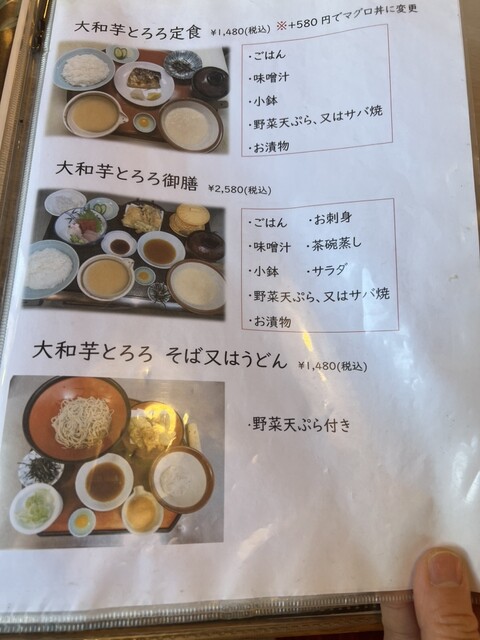 大和芋とろろ定食 ¥1,480(税込) ※+580円でマグロ丼に変更
・ごはん
・味噌汁
・小鉢
・野菜天ぷら、又はサバ焼
・お漬物
大和芋とろろ御膳 ¥2,580(税込)
・ごはん ・お刺身
・味噌汁 ・茶碗蒸し
・小鉢 ・サラダ
・野菜天ぷら、又はサバ焼
・お漬物
大和芋とろろ そば又はうどん ¥1,480(税込)
・野菜天ぷら付き